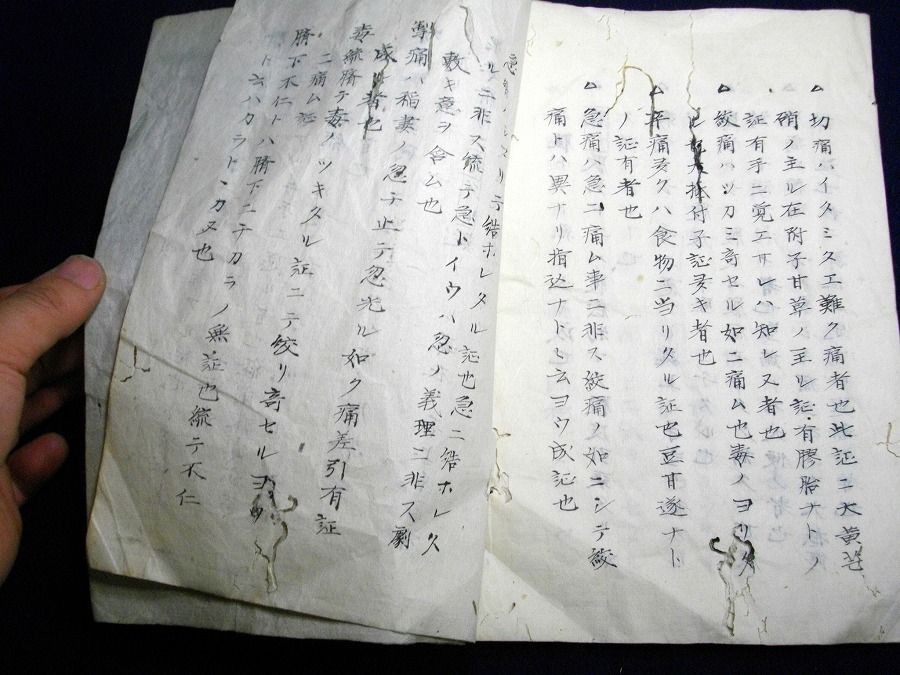 △切痛ハイタミタエ難ク痛者也此証ニ大黄芒
硝ノ主ル在附子甘草ノ主ル証有膠飴ナトノ
証有手ニ覚エサレハ知レヌ者也
△絞痛ハツカミ寄セル如ニ痛ム也毒ノヨリタ
附子証多キ者也
△卒痛多クハ食物ニ当リタル証也豆甘遂ナト
ノ証有者也
△急痛ハ急ニ痛ム事ニ非ス絞痛ノ如ニシテ絞
痛トハ異ナリ指込ナトト云ヨウ成証也
リテ結ホレタル証也急ニ結ホレタ
ルノニ非ス統テ急トイウハ忽ノ義理ニ非ス劇
敷キ意ヲ含ム也
痛ハ稲妻ノ忽チ止テ忽光ル如ク痛差引有証
成ル者也
毒統臍テ毒ノツキタル証ニテ絞リ寄セルヨウ
ニ痛ム証
臍下不仁トハ臍下ニチカラノ無証也統テ不仁
ト云ハカラトヽカヌ也